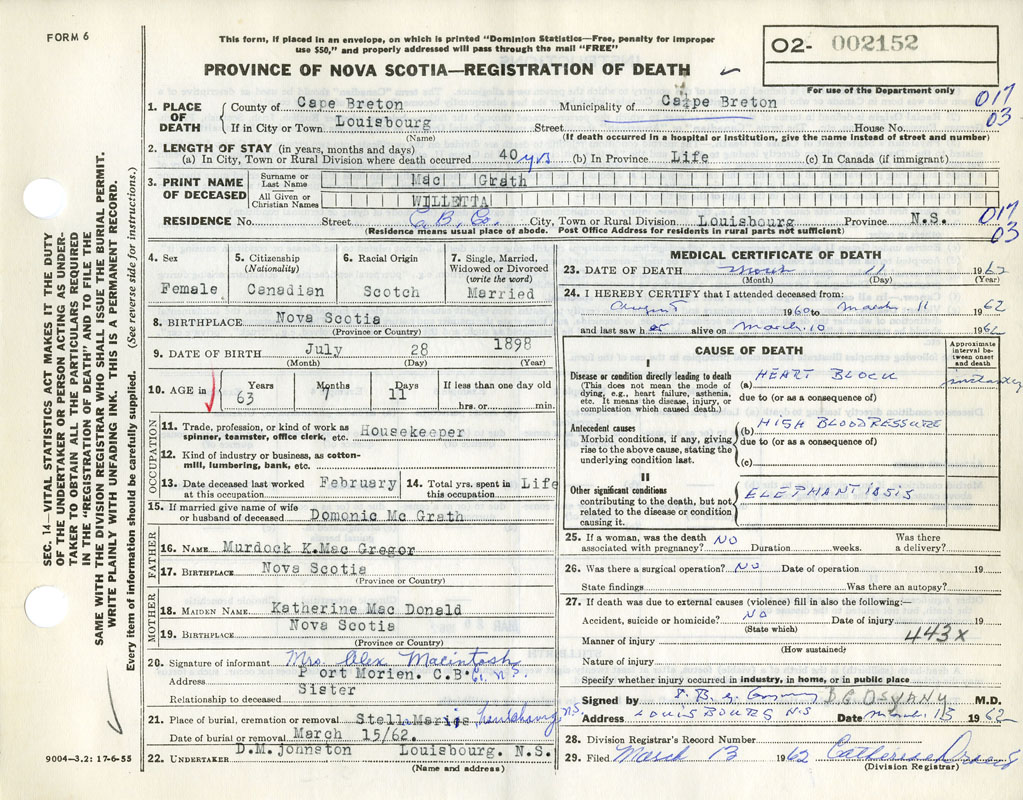 FORM 6
This form, if placed in an envelope, on which is printed "Dominion Statistics—Free, penalty for improper
use $50," and properly addressed will pass through the mail "FREE"
PROVINCE OF NOVA SCOTIA—REGISTRATION OF DEATH
O2- 002152
For use of the Department only
017
03
1. PLACE OF DEATH
County of Cape Breton Municipality of Cape Breton
If in City or Town Louisbourg Street House No.
(Name) (If death occurred in a hospital or institution, give the name instead of street and number)
2. LENGTH OF STAY (in years, months and days)
(a) In City, Town or Rural Division where death occurred 40 yrs (b) In Province Life (c) In Canada (if immigrant)
3. PRINT NAME OF DECEASED
Surname or Last Name Mac Grath
All Given or Christian Names WILLETTA
RESIDENCE No. Street C.B. Co. City, Town or Rural Division Louisbourg Province N.S.
(Residence means usual place of abode. Post Office Address for residents in rural parts not sufficient)
017
03
4. Sex
Female
5. Citizenship
(Nationality)
Canadian
6. Racial Origin
Scotch
7. Single, Married, Widowed or Divorced
(write the word)
Married
8. BIRTHPLACE Nova Scotia
(Province or Country)
9. DATE OF BIRTH July 28 1898
(Month) (Day) (Year)
10. AGE in
Years Months Days If less than one day old
63 7 11 hrs. or min.
OCCUPATION
11. Trade, profession, or kind of work as
spinner, teamster, office clerk, etc. Housekeeper
12. Kind of industry or business, as cotton-
mill, lumbering, bank, etc.
13. Date deceased last worked at this occupation February
14. Total yrs. spent in this occupation Life
15. If married give name of wife
or husband of deceased Domonic Mc Grath
FATHER
16. NAME Murdock K.Mac Gregor
17. BIRTHPLACE Nova Scotia
(Province or Country)
MOTHER
18. MAIDEN NAME Katherine Mac Donald
19. BIRTHPLACE Nova Scotia
(Province or Country)
20. Signature of informant Mrs Alex Macintosh
Address Port Morien. C.B. Co. N.S.
Relationship to deceased Sister
21. Place of burial, cremation or removal Stella Maris, N.S.
Date of burial or removal March 15/62.
22. UNDERTAKER D.M. Johnston Louisbourg. N.S.
(Name and address)
9004—3.2: 17-6-55
MEDICAL CERTIFICATE OF DEATH
23. DATE OF DEATH March 11 1962
(Month) (Day) (Year)
24. I HEREBY CERTIFY that I attended deceased from:
August 1960 to March 11 1962
and last saw her alive on March 10 1962
CAUSE OF DEATH
Approximate interval between onset and death
I
Disease or condition directly leading to death
(This does not mean the mode of
dying, e.g., heart failure, asthenia,
etc. It means the disease, injury, or
complication which caused death.)
(a) HEART BLOCK instantly
due to (or as a consequence of)
Antecedent causes
Morbid conditions, if any, giving
rise to the above cause, stating the
underlying condition last.
(b) HIGH BLOODRESSURE
due to (or as a consequence of)
(c)
II
Other significant conditions
contributing to the death, but not
related to the disease or condition
causing it.
ELEPHANTIASIS
25. If a woman, was the death
associated with pregnancy? NO Duration weeks. Was there a delivery?
26. Was there a surgical operation? NO Date of operation 19
State findings Was there an autopsy?
27. If death was due to external causes (violence) fill in also the following:—
Accident, suicide or homicide? NO Date of injury 19
(State which)
443x
Manner of injury
(How sustained)
Nature of injury
Specify whether injury occurred in industry, in home, or in public place
Signed by D.G. OSVANY M.D.
Address LOUISBOURG NS Date March 13 1962
28. Division Registrar's Record Number
29. Filed March 13 1962 Catherine
(Division Registrar)
SEC. 14—VITAL STATISTICS ACT MAKES IT THE DUTY
OF THE UNDERTAKER OR PERSON ACTING AS UNDER-
TAKER TO OBTAIN ALL THE PARTICULARS REQUIRED
IN THE "REGISTRATION OF DEATH" AND TO FILE THE
SAME WITH THE DIVISION REGISTRAR WHO SHALL ISSUE THE BURIAL PERMIT.
WRITE PLAINLY WITH UNFADING INK. THIS IS A PERMANENT RECORD.
Every item of information should be carefully supplied. (See reverse side for instructions.)